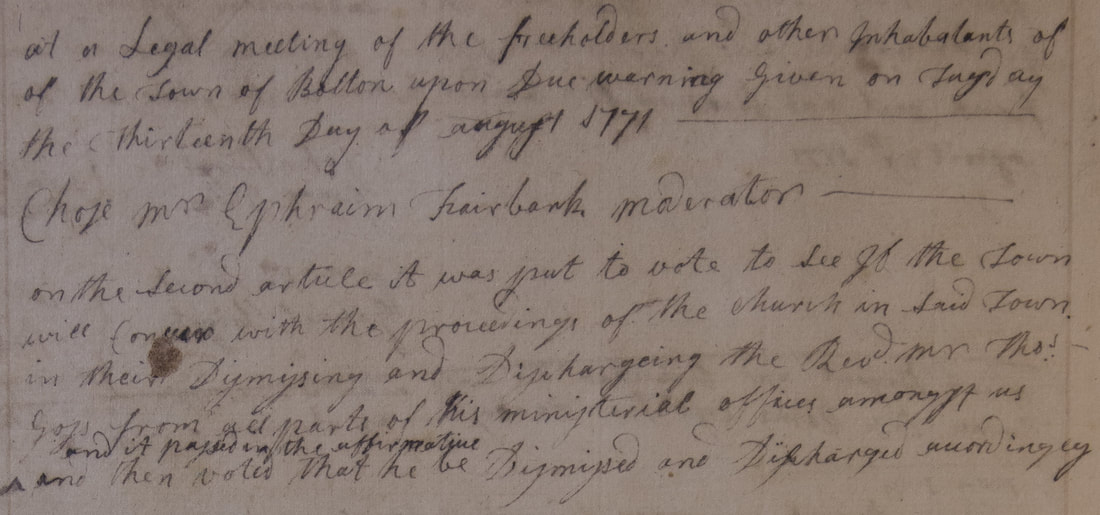 at a Legal meeting of the freeholders and other Inhabatants of
of the Town of Bolton upon Due warning Given on Tuesday
the Thirteenth Day of august 1771
Chose mr Ephraim Fairbank moderator
on the Second article it was put to vote to See If the Town
will Concur with the proceedings of the Church in Said Town
in their Dismissing and Dischargeing the Revd. mr Thos.
Goss from all parts of his ministerial offices amongst us
and it passed in the affirmative
^ and then voted that he be Dismissed and Discharged accordingly